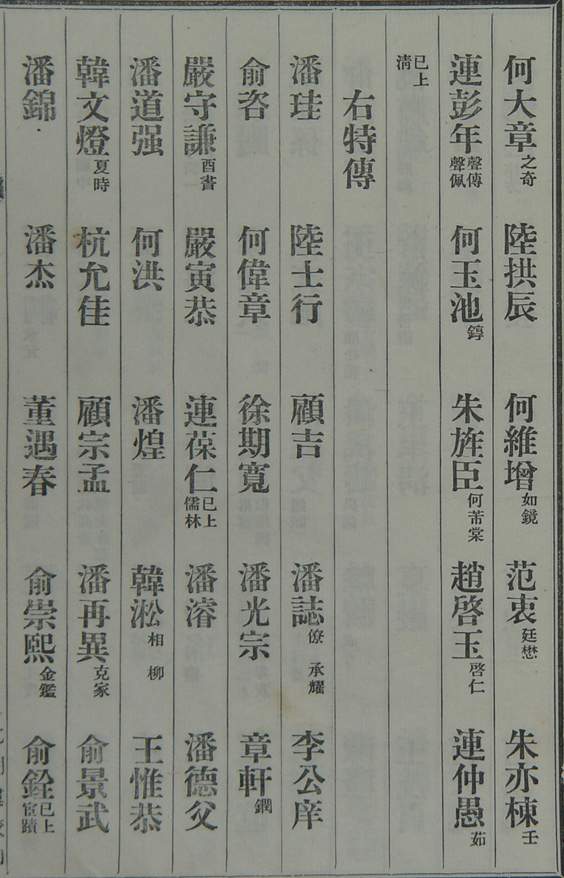 何大章之奇 陸拱辰 何維增如鏡 范衷廷懋 朱亦棟壬
連彭年聲傳聲佩 何玉池錞 朱旌臣何芾棠 趙啓玉啓仁 連仲愚茹
已上清
右特傳
潘珪 陸士行 顧吉 潘誌僚承耀 李公庠
俞咨 何偉章 徐期寬 潘光宗 章軒鐗
嚴守謙酉書 嚴寅恭 連葆仁已上儒林 潘濬 潘德父
潘道强 何洪 潘煌 韓淞相柳 王惟恭
韓文燈夏時 杭允佳 顧宗孟 潘再異克家 俞景武
潘錦 潘杰 董遇春 俞崇熙金鑑 俞銓已上宦蹟